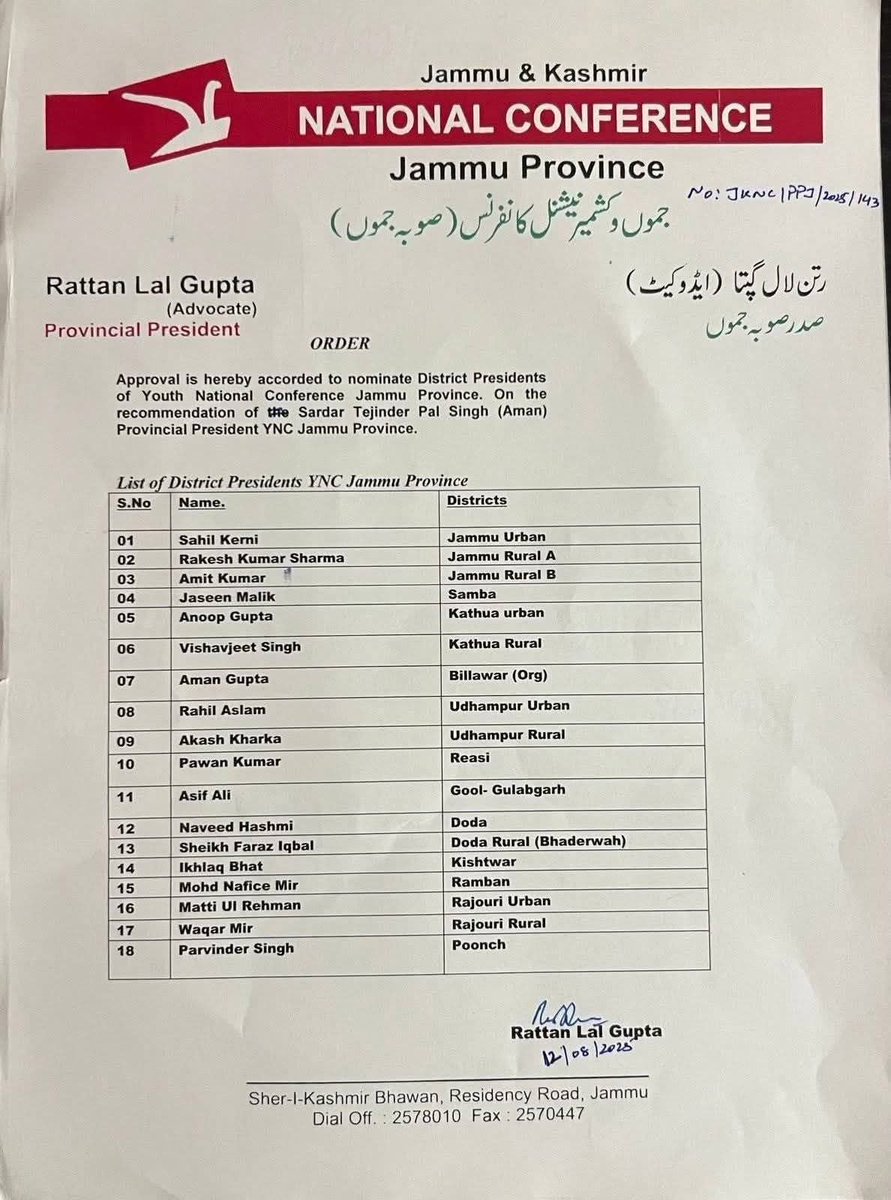 Jammu & Kashmir
NATIONAL CONFERENCE
Jammu Province
No: JKNC/PPJ/2025/143
جموں و کشمیر نیشنل کانفرنس (صوبہ جموں)
Rattan Lal Gupta
(Advocate)
Provincial President
رتن لال گپتا (ایڈوکیٹ)
صدر صوبہ جموں
ORDER
Approval is hereby accorded to nominate District Presidents
of Youth National Conference Jammu Province. On the
recommendation of the Sardar Tejinder Pal Singh (Aman)
Provincial President YNC Jammu Province.
List of District Presidents YNC Jammu Province
S.No Name. Districts
01 Sahil Kerni Jammu Urban
02 Rakesh Kumar Sharma Jammu Rural A
03 Amit Kumar Jammu Rural B
04 Jaseen Malik Samba
05 Anoop Gupta Kathua urban
06 Vishavjeet Singh Kathua Rural
07 Aman Gupta Billawar (Org)
08 Rahil Aslam Udhampur Urban
09 Akash Kharka Udhampur Rural
10 Pawan Kumar Reasi
11 Asif Ali Gool- Gulabgarh
12 Naveed Hashmi Doda
13 Sheikh Faraz Iqbal Doda Rural (Bhaderwah)
14 Ikhlaq Bhat Kishtwar
15 Mohd Nafice Mir Ramban
16 Matti Ul Rehman Rajouri Urban
17 Waqar Mir Rajouri Rural
18 Parvinder Singh Poonch
Rattan Lal Gupta
12/08/2025
Sher-I-Kashmir Bhawan, Residency Road, Jammu
Dial Off. : 2578010 Fax : 2570447